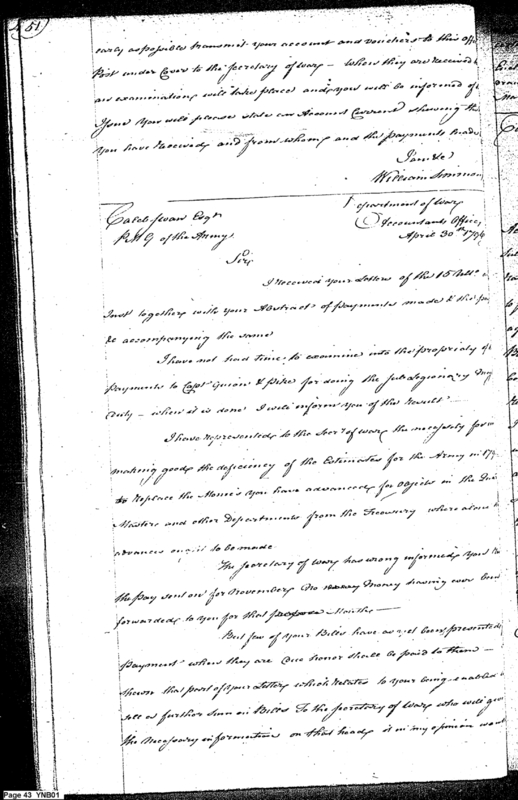 51
early as possible transmit your account and vouchers to this off
Post under Cover to the Secretary of War – when they are received
an examination will take place and you will be informed of
You will please state an Account Current shewing the
you have received and from whom and the payments made
I am &c
William Simmon
Department of War
Caleb Swan Esqr
Accountants Office
P.M.G of the Army
April 30th 179
Sir
I received your Letters of the 15 Ulto
Inst together with your Abstracts of payments made & the
&c accompanying the same
I have not had time to examine into the propriety of
payments to Capt Guion & Pike for doing the Sub Legionary
duty – when it is done I will inform you of the Result
I have represented to the Secry of War the necessity for
making good the deficiency of the Estimates for the Army in 179
to Replace the Monies you have advanced for Objects in the Qu
Masters and other Departments from the Treasury where alone
advances ought to be made
The Secretary of War has wrong informed you
the pay sent on for November no money having ever been
forwarded to you for that Months –
But few of your Bills have as yet been presented
payment when they are due honor shall be paid to them –
shewn that part of your Letter which relates to your being enabled
sell a further Sum in Bills To the Secretary of War who will give
the necessary information on that head, it in my opinion
Page 43 YNB01